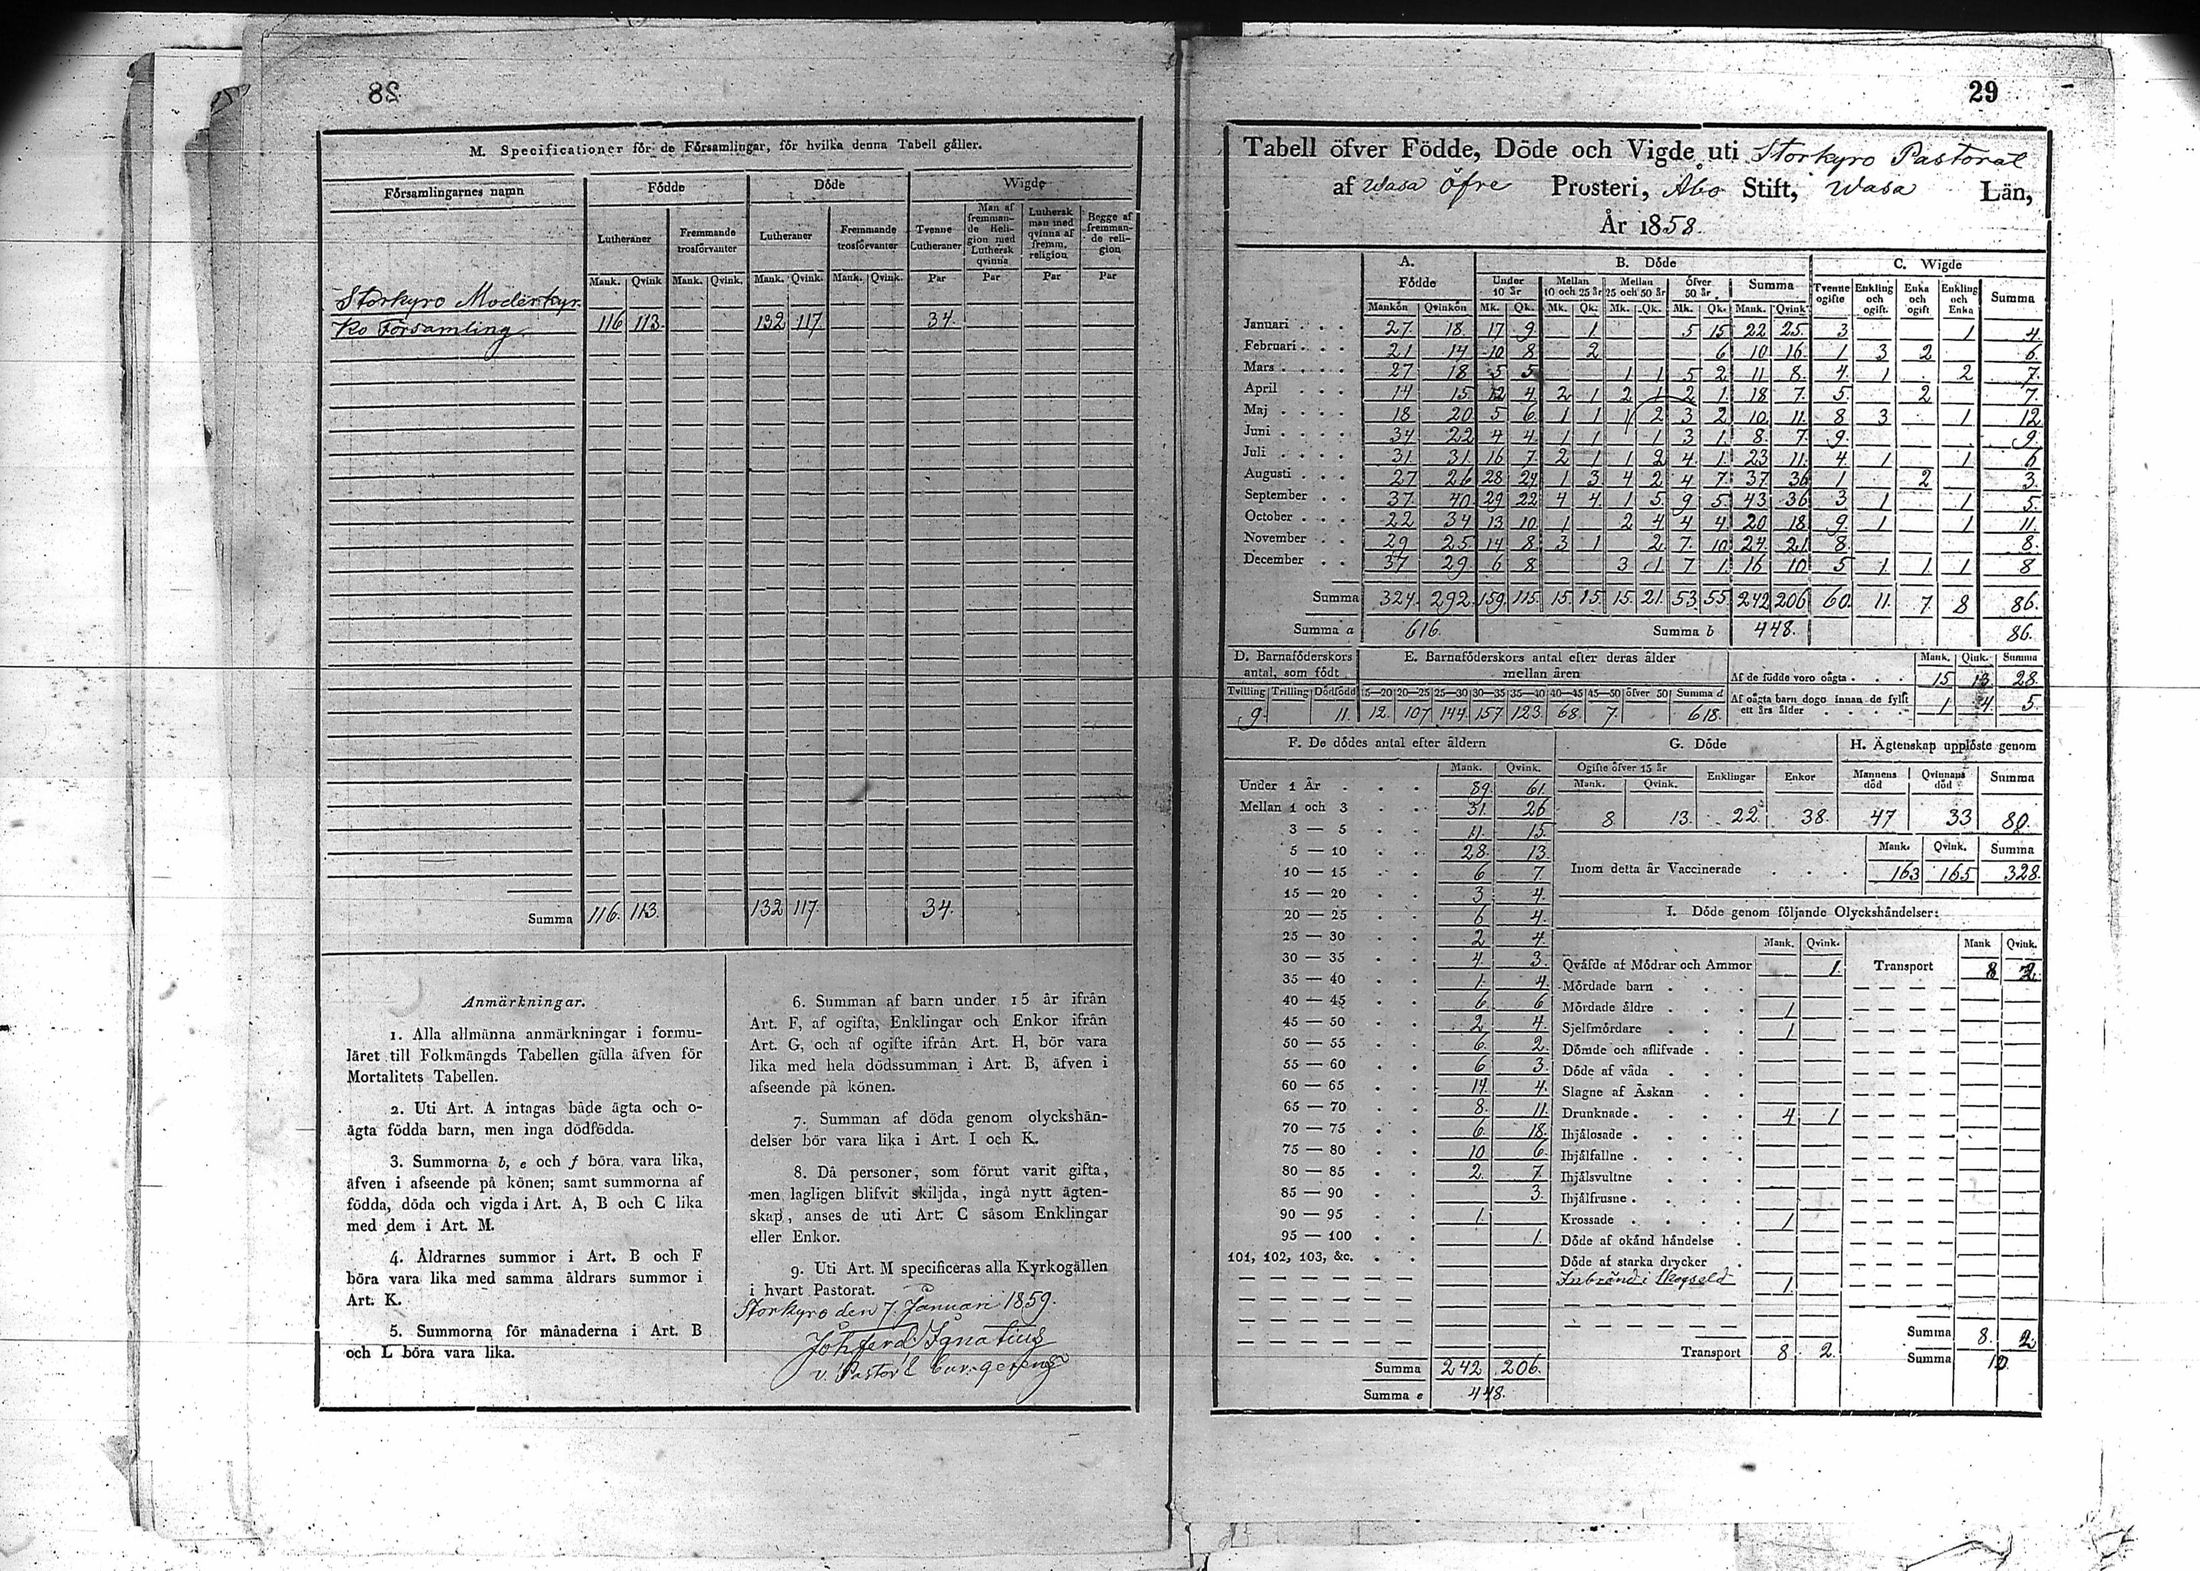 28
M. Specificationer för de Församlingar, för hvilka denna Tabell gäller.
Församlingarnes namn | Födde | Döde | Wigde
Lutheraner | Fremmande trosförvanter | Lutheraner | Fremmande trosförvanter | Tvenne Lutheraner | Man af fremmande Religion med Luthersk qvinna | Luthersk man med qvinna af fremm. religion | Begge af fremmande religion
Mank. | Qvink | Mank. | Qvink. | Mank. | Qvink. | Mank. | Qvink. | Par | Par | Par | Par
Storkyro Moderkyr-
ko Församling | 116 | 113. | 132 | 117 | 34.
Summa | 116. | 113. | 132 | 117. | 34.
Anmärkningar.
1. Alla allmänna anmärkningar i formu-
läret till Folkmängds Tabellen gälla äfven för
Mortalitets Tabellen.
2. Uti Art. A intagas både ägta och o-
ägta födda barn, men inga dödfödda.
3. Summorna b, e och f böra vara lika,
äfven i afseende på könen; samt summorna af
födda, döda och vigda i Art. A, B och C lika
med dem i Art. M.
4. Åldrarnes summor i Art. B och F
böra vara lika med samma åldrars summor i
Art. K.
5. Summorna för månaderna i Art. B
och L böra vara lika.
6. Summan af barn under 15 år ifrån
Art. F, af ogifta, Enklingar och Enkor ifrån
Art. G, och af ogifte ifrån Art. H, bör vara
lika med hela dödssumman i Art. B, äfven i
afseende på könen.
7. Summan af döda genom olyckshän-
delser bör vara lika i Art. I och K.
8. Då personer, som förut varit gifta,
men lagligen blifvit skiljda, ingå nytt ägten-
skap, anses de uti Art. C såsom Enklingar
eller Enkor.
9. Uti Art. M specificeras alla Kyrkogällen
i hvart Pastorat.
Storkyro den 7. Januari 1859.
Joh. Ferd. Ignatius
v. Pastor
29
Tabell öfver Födde, Döde och Vigde uti Storkyro Pastorat
af Wasa Öfre Prosteri, Åbo Stift, Wasa Län,
År 1858.
A. Födde | B. Döde | C. Wigde
Under 10 år | Mellan 10 och 25 år | Mellan 25 och 50 år | Öfver 50 år | Summa | Tvenne ogifte | Enkling och ogift. | Enka och ogift | Enkling och Enka | Summa
Mankön | Qvinkön | Mk. | Qk. | Mk. | Qk. | Mk. | Qk. | Mk. | Qk. | Mank. | Qvink
Januari | 27 | 18 | 17 | 9 | 1 | 5 | 15 | 22 | 25. | 3 | 1 | 4.
Februari | 21 | 14 | 10 | 8 | 2 | 6 | 10 | 16. | 1 | 3 | 2 | 6.
Mars | 27 | 18 | 5 | 5 | 1 | 1 | 5 | 2 | 11 | 8. | 4. | 1 | 2 | 7.
April | 14 | 15 | 12 | 4 | 2 | 1 | 2 | 1 | 2 | 1. | 18 | 7. | 5. | 2 | 7.
Maj | 18 | 20 | 5 | 6 | 1 | 1 | 1 | 2 | 3 | 2 | 10. | 11. | 8 | 3 | 1 | 12
Juni | 34 | 22 | 4 | 4. | 1 | 1 | 1 | 3 | 1. | 8. | 7. | 9. | 9.
Juli | 31 | 31. | 16 | 7. | 2 | 1 | 1 | 2 | 4 | 1. | 23 | 11. | 4. | 1 | 1 | 6
Augusti | 27 | 26 | 28 | 24 | 1 | 3 | 4 | 2 | 4 | 7. | 37 | 36 | 1 | 2 | 3.
September | 37. | 40. | 29 | 22 | 4 | 4 | 1 | 5. | 9 | 5. | 43 | 36 | 3 | 1 | 1 | 5.
October | 22 | 34 | 13 | 10 | 1 | 2 | 4 | 4 | 4 | 20 | 18. | 9. | 1 | 1 | 11.
November | 29 | 25. | 14 | 8. | 3 | 1 | 2 | 7. | 10 | 24. | 21. | 8. | 8.
December | 37 | 29. | 6 | 8 | 3 | 1 | 7 | 1. | 16 | 10 | 5 | 1 | 1 | 1 | 8
Summa | 324. | 292. | 159. | 115. | 15. | 15. | 15. | 21. | 53. | 55. | 242 | 206 | 60. | 11. | 7. | 8 | 86.
Summa a | 616. | Summa b | 448. | 86.
D. Barnaföderskors antal, som födt | E. Barnaföderskors antal efter deras ålder mellan åren | Mank. | Qink. | Summa
Tvilling | Trilling | Dödfödd | 15—20 | 20—25 | 25—30 | 30—35 | 35—40 | 40—45 | 45—50 | öfver 50 | Summa d
9. | 11. | 12. | 107 | 144 | 157 | 123. | 68. | 7. | 618.
Af de födde voro oägta | 15 | 13. | 28.
Af oägta barn dogo innan de fyllt ett års ålder | 1 | 4. | 5
F. De dödes antal efter åldern
Mank. | Qvink.
Under 1 År | 89. | 61.
Mellan 1 och 3 | 31. | 26
3 — 5 | 11. | 15.
5 — 10 | 28. | 13.
10 — 15 | 6 | 7
15 — 20 | 3 | 4.
20 — 25 | 6 | 4.
25 — 30 | 2 | 4.
30 — 35 | 4. | 3.
35 — 40 | 1. | 4.
40 — 45 | 6 | 6
45 — 50 | 2 | 4.
50 — 55 | 6. | 2.
55 — 60 | 6 | 3.
60 — 65 | 14 | 4.
65 — 70 | 8. | 11.
70 — 75 | 6 | 18.
75 — 80 | 10 | 6.
80 — 85 | 2. | 7
85 — 90 | 3.
90 — 95 | 1.
95 — 100 | 1.
101, 102, 103, &c.
Summa | 242 | 206.
Summa e | 448.
G. Döde
Ogifte öfver 15 år | Enklingar | Enkor
Mank. | Qvink.
8. | 13. | 22. | 38.
H. Ägtenskap upplöste genom
Mannens död | Qvinnans död | Summa
47 | 33 | 80.
Mank. | Qvink. | Summa
Inom detta år Vaccinerade | 163 | 165 | 328.
I. Döde genom följande Olyckshändelser:
Mank. | Qvink. | Mank | Qvink.
Qväfde af Mödrar och Ammor | 1. | Transport | 8 | 2.
Mördade barn
Mördade äldre | 1
Sjelfmördare | 1
Dömde och aflifvade
Döde af våda
Slagne af Åskan
Drunknade | 4 | 1
Ihjälosade
Ihjälfallne
Ihjälsvultne
Ihjälfrusne
Krossade | 1
Döde af okänd händelse
Döde af starka drycker
Inbränd i Skogseld | 1.
Transport | 8. | 2.
Summa | 8. | 2
Summa | 10.